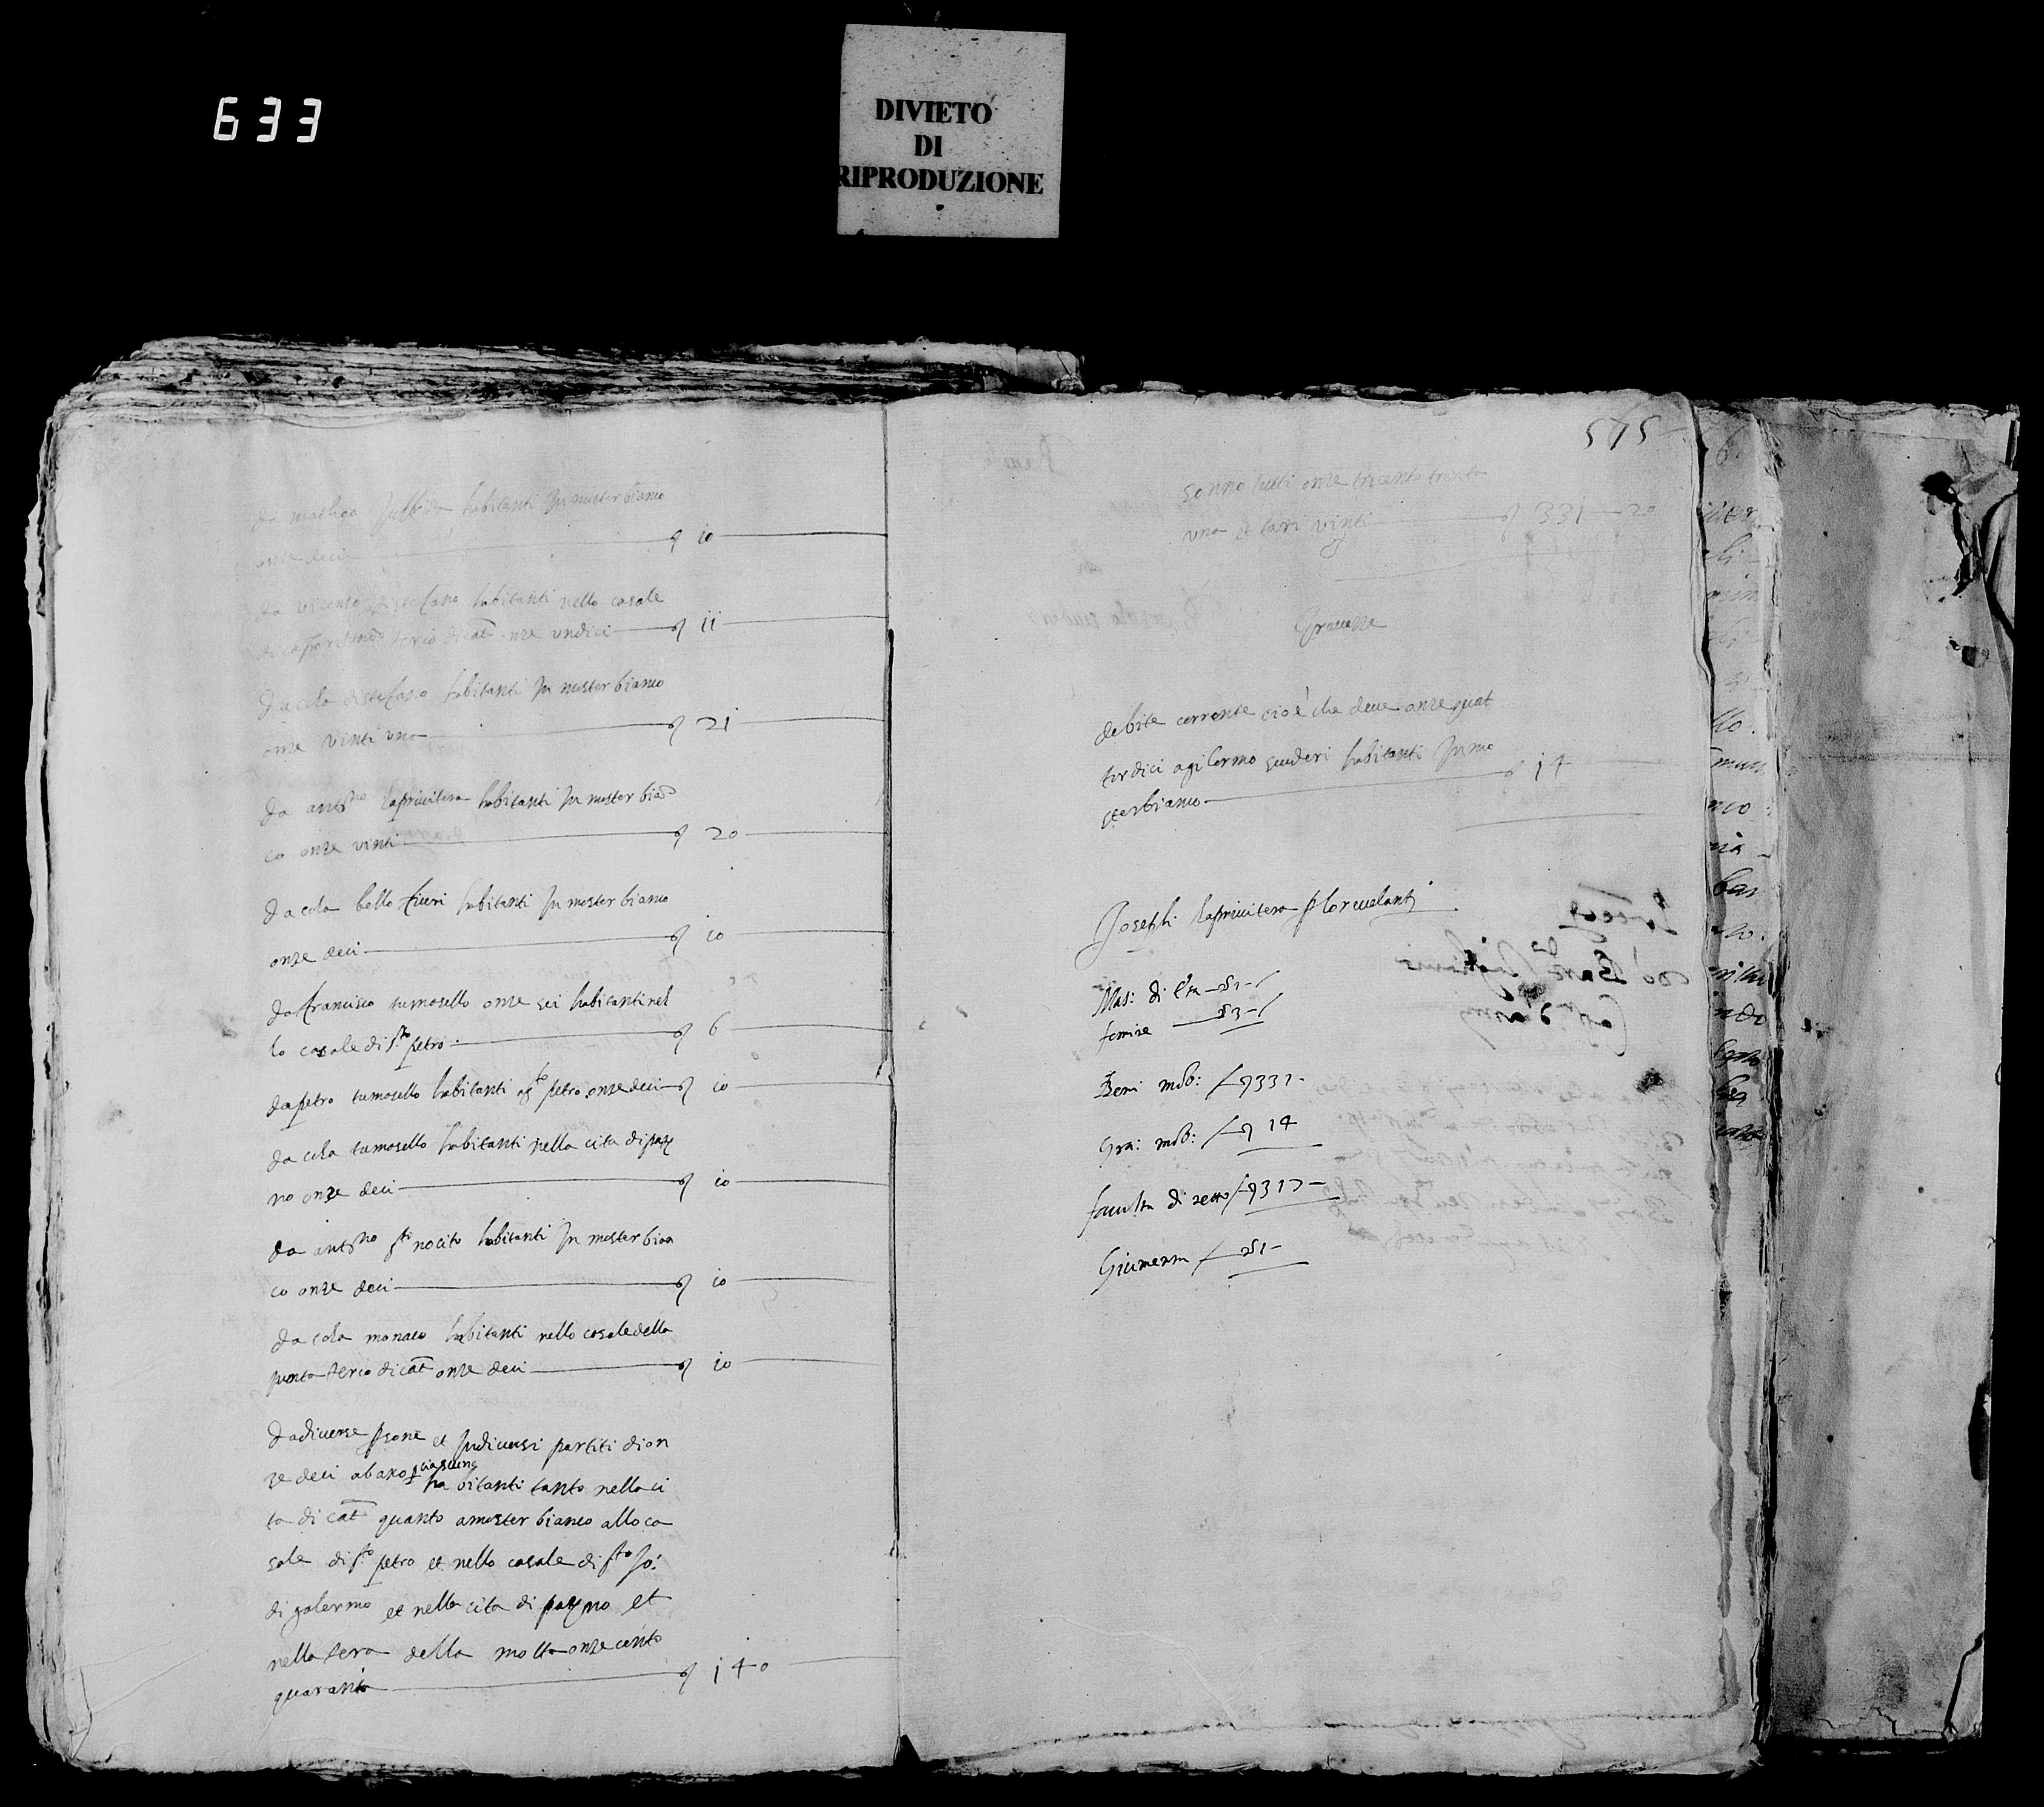 633
DIVIETO
DI
RIPRODUZIONE
da habitanti In mester bianco
onze deci q 10
da vicenso habitanti nello casale
tercio di cat onze undici q 11
da cola distefano habitanti In mester bianco
onze vinti una q 21
da antno laprivitera habitanti In mester bia
co onze vinti q 20
da cola bello fiuri habitanti In mester bianco
onze deci q 10
da francisco tumasello onze sei habitanti nel
lo casale di sto petro q 6
da petro tumasello habitanti a sto petro onze deci q 10
da cola tumasello habitanti nella cita di pater
no onze deci q 10
da antno nocito habitanti In mester bian
co onze deci q 10
da cola monaco habitanti nello casale della
punta tercio di cat onze deci q 10
da diverse psone et In diversi partiti di on
ze deci abaxo p ciascuno habitanti tanto nella ci
ta di cat quanto a mester bianco allo ca
sale di sto petro et nello casale di sto Jo:
di galermo et nella cita di paterno et
nella tera della motta onze cento
quaranta q 140
575
sonno tutti onze tricento trenta
una et tari vinti q 331 20
Gravezze
debite corrente cioè che deve onze quat
tordici a gilermo scuderi habitanti In me
ster bianco q 14
Joseph laprivitera
Mas: di Eta
femine
Beni mob: 331
Gra: mob: 14
faculta di netto 317
Giumenta 1